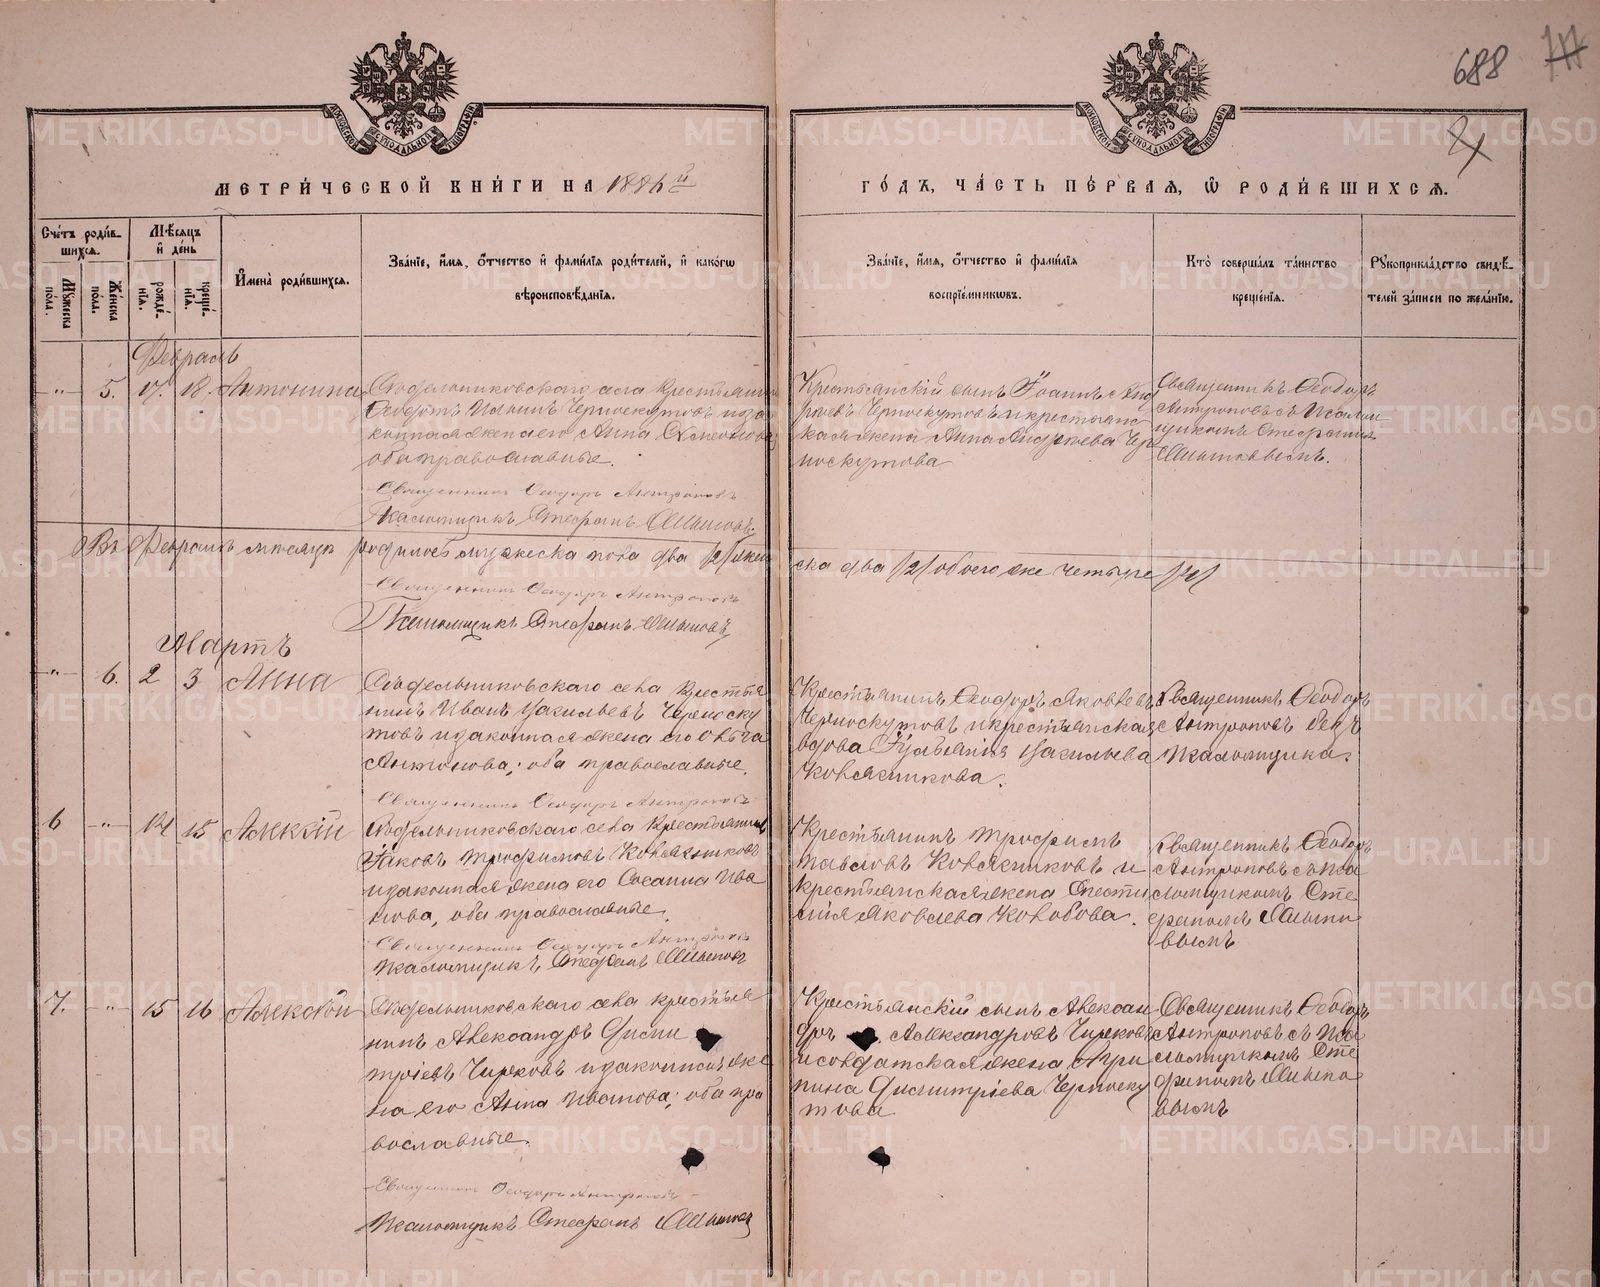 688
МЕТРИ́ЧЕСКОЙ КНИ́ГИ НА 1886 й
ГО́ДЪ, ЧА́СТЬ ПЕ́РВАЯ, Ѿ РОДИ́ВШИХСѦ.
Сче́тъ роди́вшихсѧ.
Мꙋжеска по́ла.
Же́нска по́ла.
Мѣ́сяцъ и҆ де́нь
рожде́нїѧ.
креще́нїѧ.
И҆мена̀ роди́вшихсѧ.
Зва́нїе, и҆́мѧ, ѻ҆́тчество и҆ фами́лїѧ роди́телей, и҆ како́гѡ
вѣроисповѣ́данїѧ.
Зва́нїе, и҆́мѧ, ѻ҆́тчество и҆ фами́лїѧ
воспрїе́мникѡвъ.
Кто̀ соверша́лъ та́инство
креще́нїѧ.
Рꙋкоприкла́дство свидѣ́-
телей за́писи по жела́нїю.
Февраль
-"- 5. 17. 18. Антонина
Сподельниковскаго села Крестьянинъ
Ѳеодотъ Ильинъ Черноскутовъ и за
конная жена его Анна Семенова
оба православные.
Священникъ Ѳеодоръ Антроповъ
Псаломщикъ Стефанъ
Крестьянскій сынъ Іоаннъ Анд
реевъ Черноскутовъ и крестьянс
кая жена Анна Андреева Чер
носкутова
Священникъ Ѳеодоръ
Антроповъ съ Псалом
щикомъ Стефаномъ
Въ Февралѣ мѣсяцѣ родилось мужеска пола два /2/ жен
ска два /2/ обоего же четыре /4/
Священникъ Ѳеодоръ Антроповъ
Псаломщикъ Стефанъ
Мартъ
-"- 6. 2 3 Анна
села Крестья
нинъ Иванъ Васильевъ Черноску
товъ и законная жена его Ольга
Антонова; оба православные.
Священникъ Ѳеодоръ Антроповъ
Крестьянинъ Ѳеодоръ Яковлевъ
Черноскутовъ и крестьянская
вдова Іуліанія Васильева
Ковязникова.
Священникъ Ѳеодоръ
Антроповъ безъ
псаломщика.
6 -"- 14 15 Алексій
села Крестьянинъ
Іаковъ Трофимовъ Ковязниковъ
и законная жена его Сосанна Ива
нова, оба православные.
Священникъ Ѳеодоръ Антроповъ
псаломщикъ Стефанъ
Крестьянинъ Трофимъ
Павловъ Ковязниковъ и
крестьянская жена
Яковлева
Священникъ Ѳеодоръ
Антроповъ съ пса
ломщикомъ Сте
фаномъ
7. -"- 15 16 Алексей
села крестья
нинъ Александръ Дими
тріевъ Чирковъ и законная же
на его Анна Иванова; оба пра
вославные.
Священникъ Ѳеодоръ Антроповъ
Псаломщикъ Стефанъ
Крестьянскій сынъ Алексан
дръ Александровъ Чирковъ
и солдатская жена Ири
нина Димитріева Черноску
това
Священникъ Ѳеодоръ
Антроповъ съ пса
ломщикомъ Сте
фаномъ
METRIKI.GASO-URAL.RU